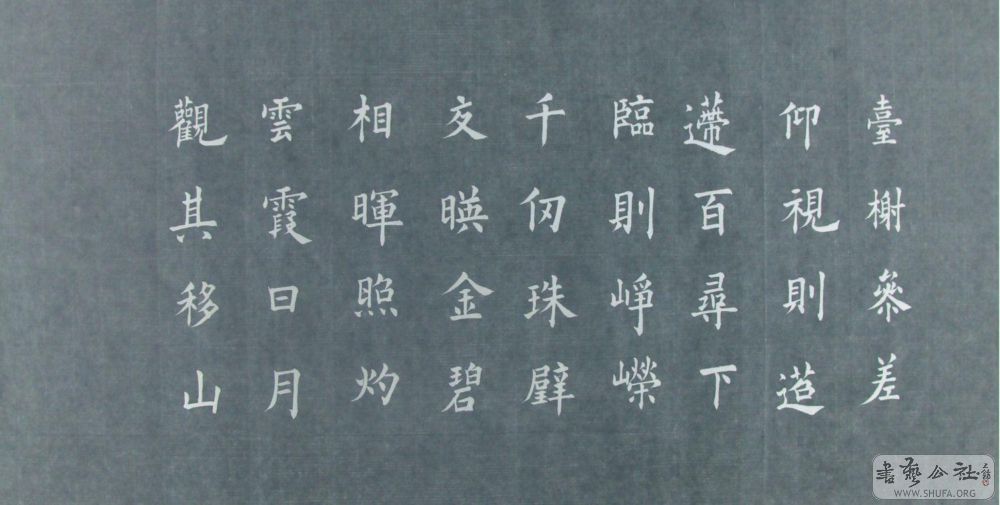 臺榭參差
仰視則迢
遰百尋下
臨則崢嶸
千仞珠壁
交暎金碧
相暉照灼
雲霞日月
觀其移山
書藝公社
WWW.SHUFA.ORG